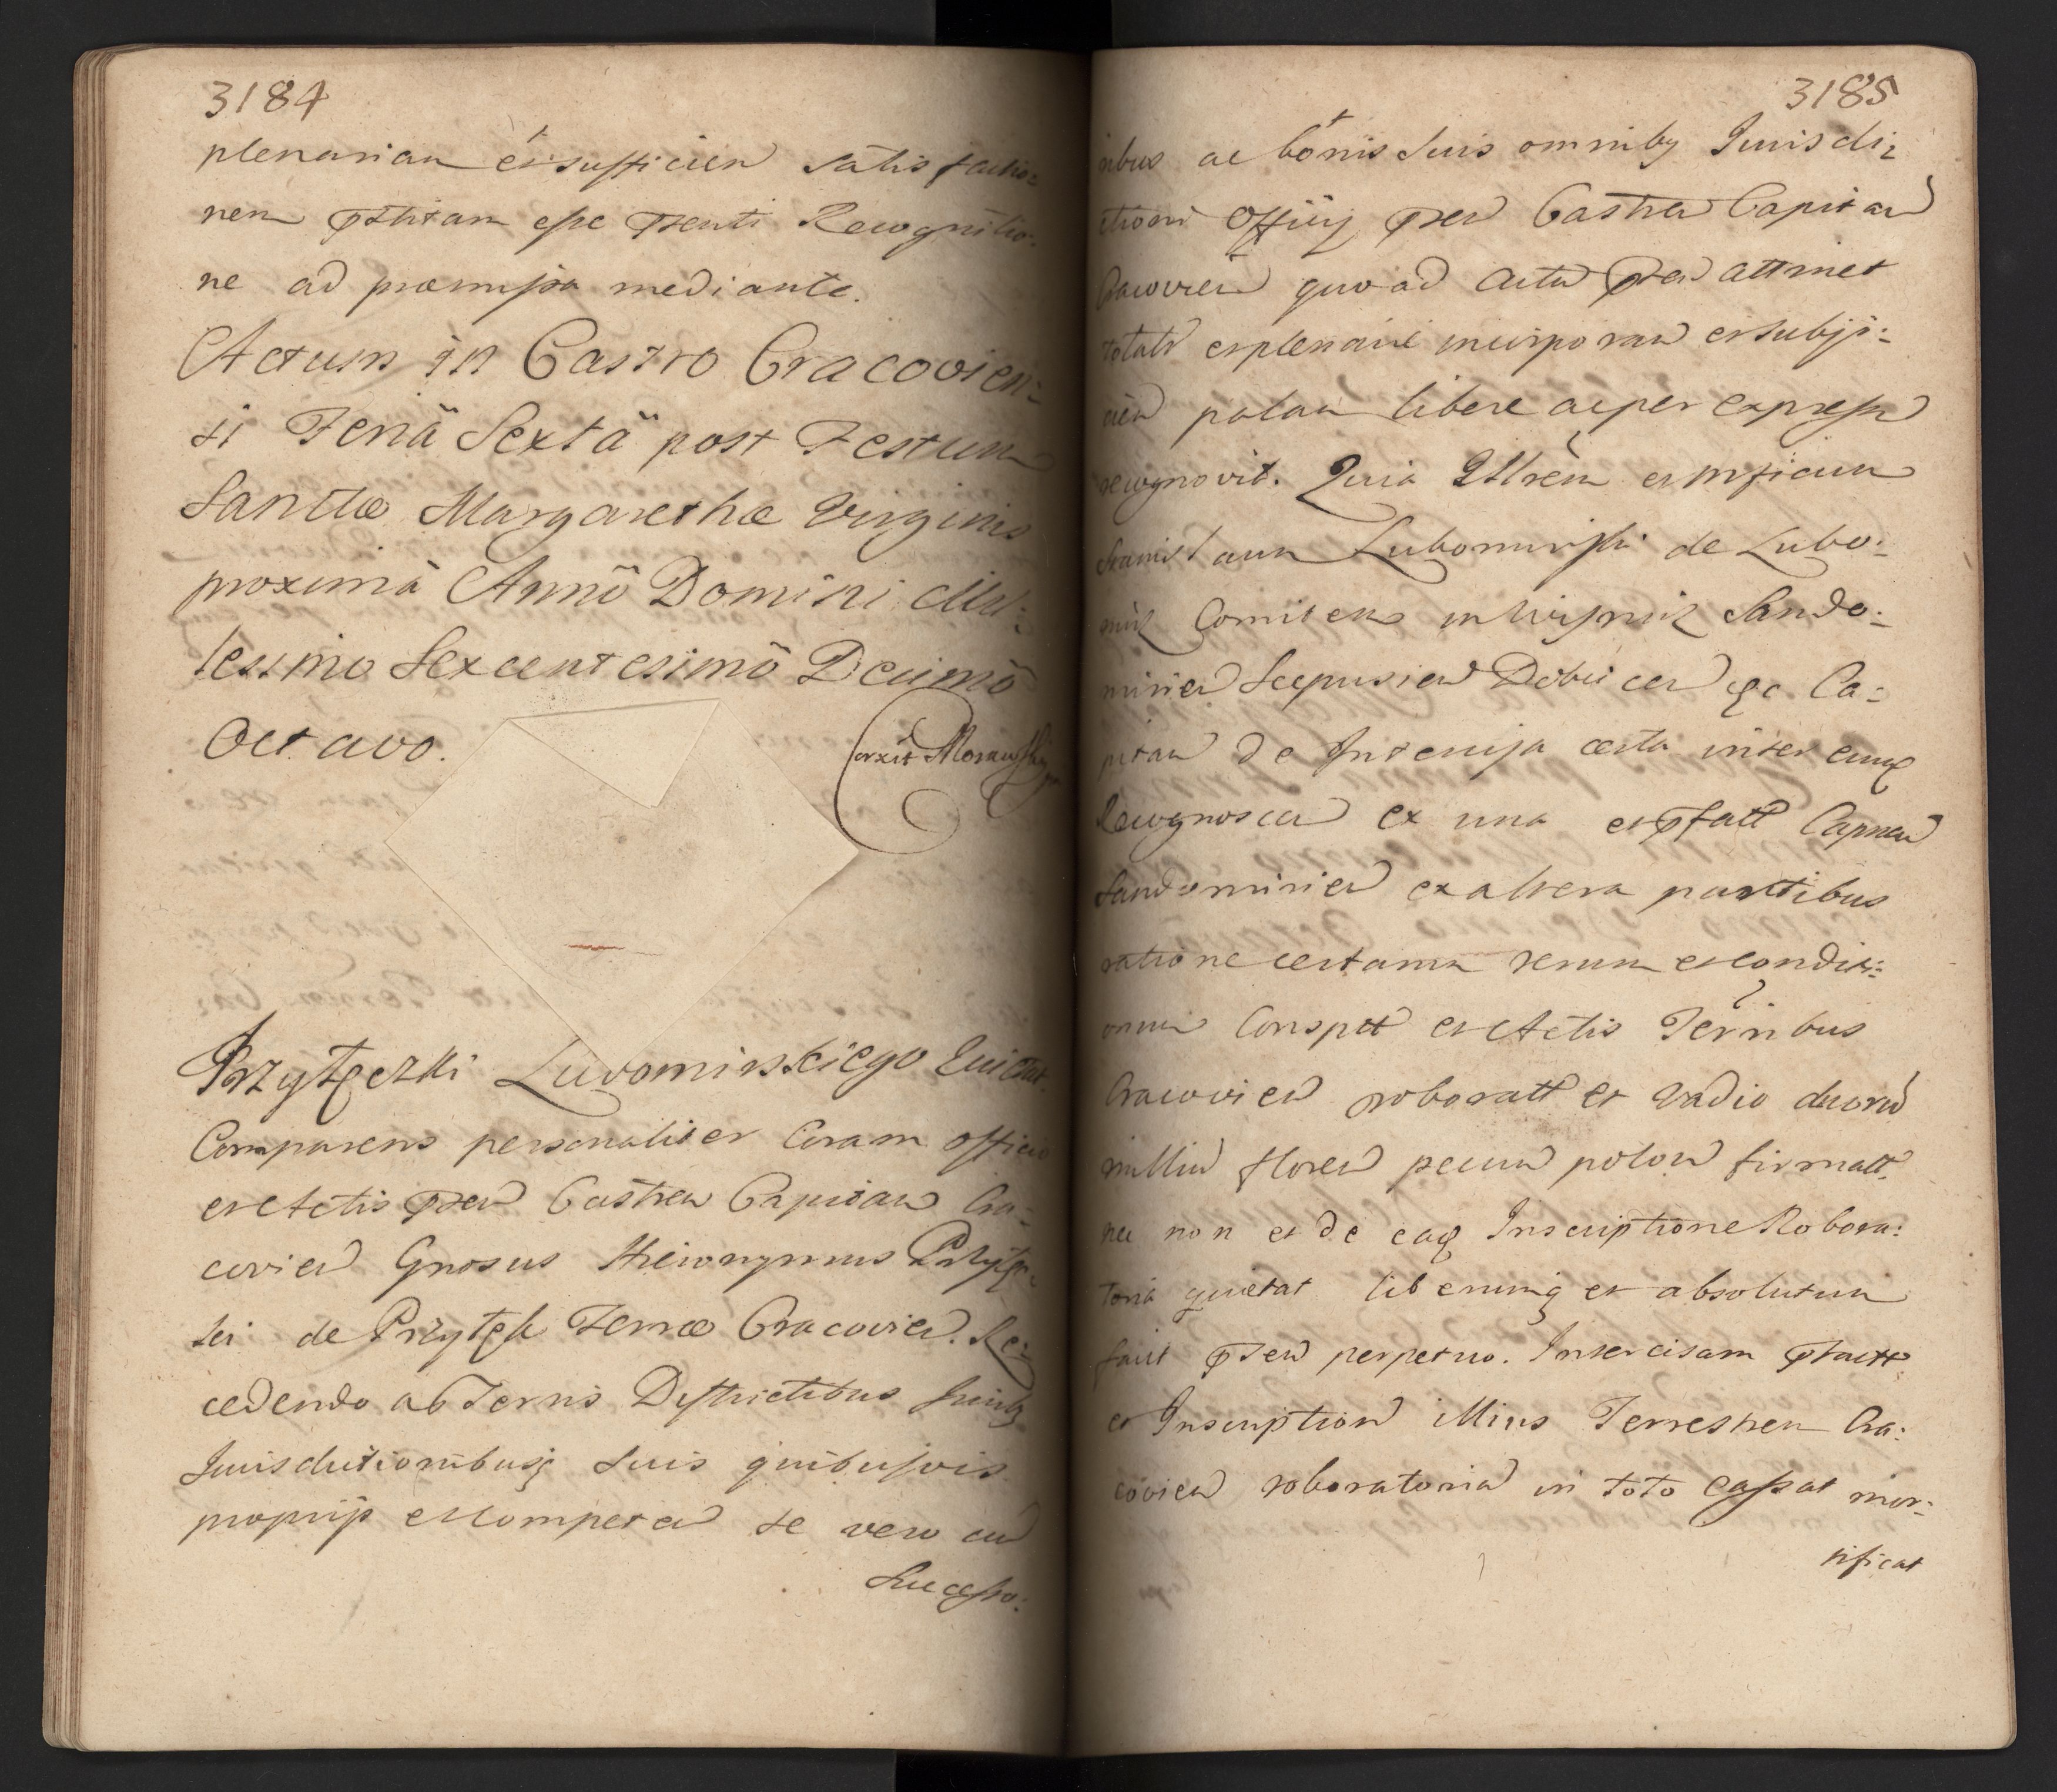 3184
plenariam et sufficien satisfactio:
nem pstitam esse psenti Recognitio:
ne ad præmissa mediante.
Actum in Castro Cracovien:
si Feriâ Sextâ post Festum
Sanctæ Margarethæ Virginis
proximâ Annô Domini Mil:
lesimo Sexcentesimô Decimô
Octavo.
Corxit Morawski
Przyłęczki Lubomirskiego Quietat.
Comparens personaliter Coram officio
et Actis psen Castren Capitan Cra:
covien Gnosus Hieronymus Przyłęc:
ki de Przyłęk Terræ Cracovien. Re:
cedendo ab Terris Districtibus Jurib9
Jurisdictionibusq suis quibusvis
proprijs et competen se vero cu
Successo:
3185
ribus ac bonis suis omnibg Jurisdi:
ctioni Officij psen Castren Capitan
Cracovien quoad Actu psen attinet
totalr et plenarie incorporan et subji:
cien palam libere ac per expressu
recognovit. Quia Illrem et Mficum
Stanislaum Lubomirski de Lubo:
mirz Comitem in Wisznicz Sando:
mirien Scepusien Dobcicen &c. Ca:
pitan de Intercisa certa inter eumq
Recognoscen ex una et pfatt Capneu
Sandomirien ex altera partibus
ratione certarum rerum et conditi:
onum Consptt et Actis Terribus
Cracovien roboratt et vadio duoru
milliu floren pecun polon firmatt,
nec non et de eaq Inscriptione Robora:
toria quietat liberumq et absolutum
facit psen perpetuo. Intercisam pfactt
et Inscription illius Terrestrem Cra:
covien roboratoria in toto cassat mor:
tificat